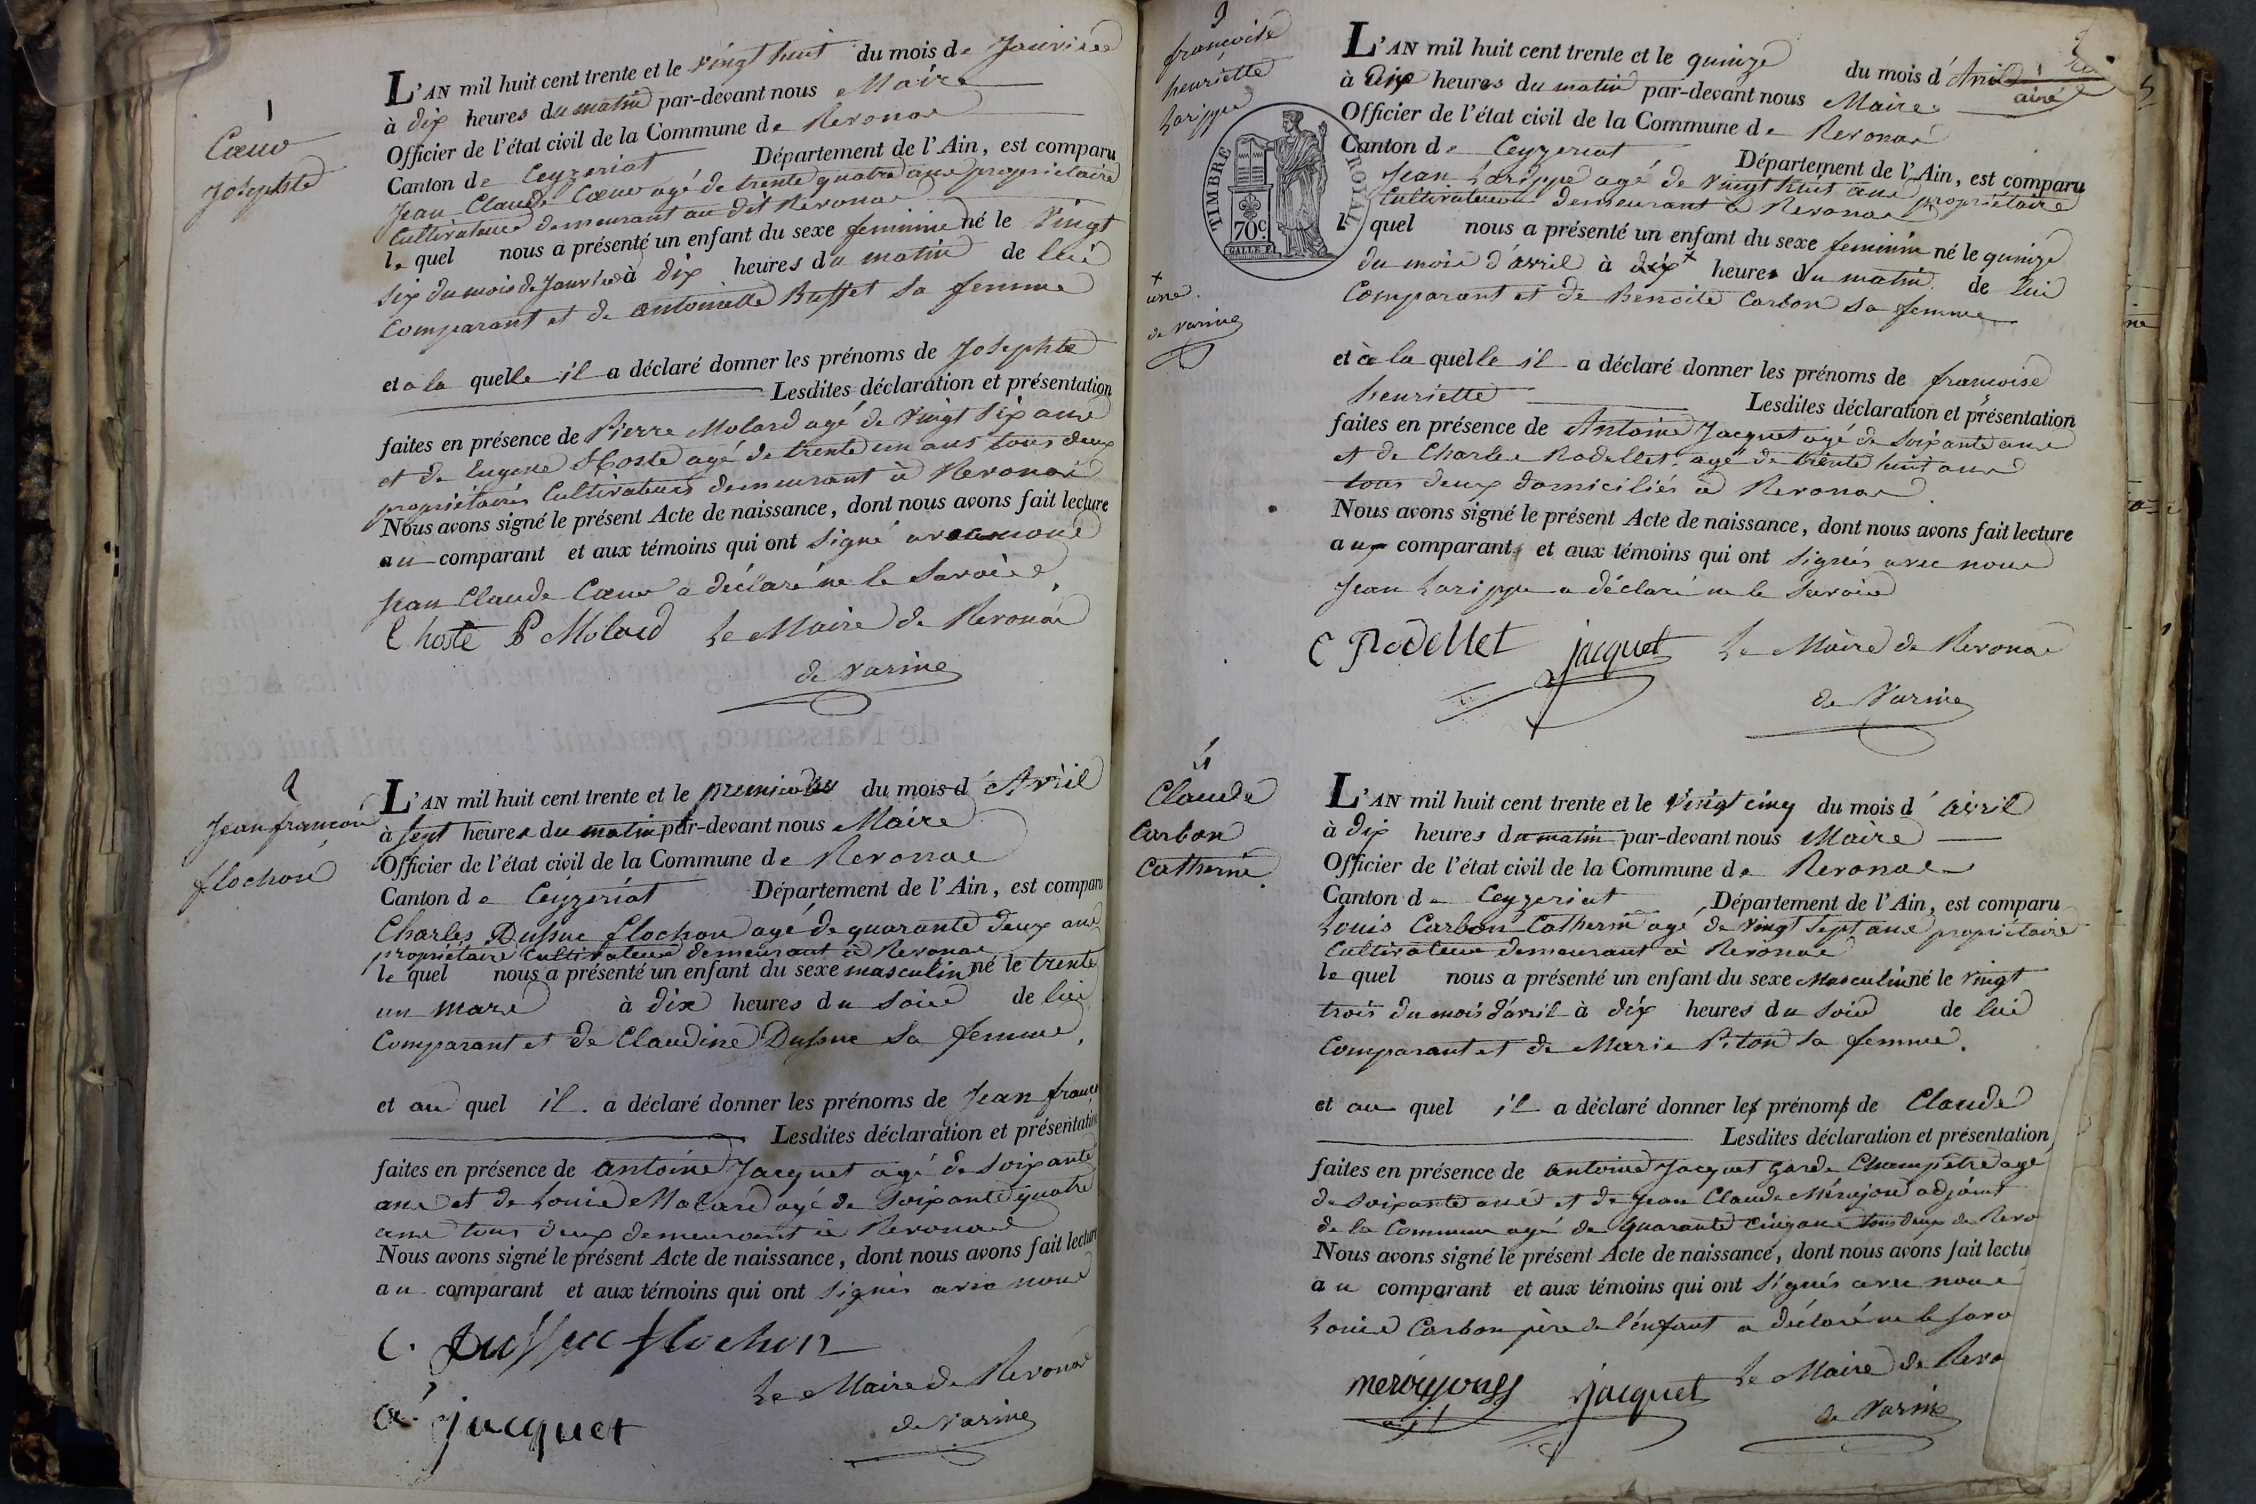 1
Cœur
Josephte
L'AN mil huit cent trente et le vingt huit du mois de Janvier
à dix heures du matin par-devant nous Maire
Officier de l'état civil de la Commune de Revonas
Canton de Ceyzeriat Département de l'Ain, est comparu
Jean Claude Cœur agé de trente quatre ans propriétaire
Cultivateur demeurant au dit Revonas
le quel nous a présenté un enfant du sexe feminin né le vingt
six du mois de Janvier à dix heures du matin de lui
Comparant et de antoinette Buffet sa femme
et a la quelle il a déclaré donner les prénoms de Josephte
Lesdites déclaration et présentation
faites en présence de Pierre Molard agé de vingt six ans
et de Eugene Hoste agé de trente un ans tous deux
propriétaires Cultivateurs demeurant à Revonas
Nous avons signé le présent Acte de naissance, dont nous avons fait lecture
au comparant et aux témoins qui ont signé avec nous
Jean Claude Cœur a déclaré ne le savoir.
E hoste P Molard Le Maire de Revonas
de Varine
2
Jean francois
flochon
L'AN mil huit cent trente et le premier du mois d'Avril
à sept heures du matin par-devant nous Maire
Officier de l'état civil de la Commune de Revonas
Canton de Ceyzeriat Département de l'Ain, est comparu
Charles Dufsuc flochon agé de quarante deux ans
propriétaire Cultivateur demeurant à Revonas
le quel nous a présenté un enfant du sexe masculin né le trente
un mars à dix heures du soir de lui
Comparant et de Claudine Dufsuc sa femme,
et au quel il a déclaré donner les prénoms de Jean franc
Lesdites déclaration et présentation
faites en présence de antoine Jacquet agé de soixante
ans et de Louis Molard agé de soixante quatre
ans tous deux demeurant à Revonas
Nous avons signé le présent Acte de naissance, dont nous avons fait lecture
au comparant et aux témoins qui ont signés avec nous
C. Dufsuc flochon
Le Maire de Revonas
a. jacquet
de Varine
3
francoise
henriette
Larippe
TIMBRE ROYAL
70 c.
L'AN mil huit cent trente et le quinze du mois d'Avril
à dix heures du matin par-devant nous Maire
Officier de l'état civil de la Commune de Revonas
Canton de Ceyzeriat Département de l'Ain, est comparu
Jean Larippe agé de vingt huit ans propriétaire
Cultivateur demeurant à Revonas
le quel nous a présenté un enfant du sexe feminin né le quinze
du mois d'avril à dix + heures du matin de lui
Comparant et de Benoite Carbon sa femme
+ une
de varine
et à la quelle il a déclaré donner les prénoms de francoise
henriette Lesdites déclaration et présentation
faites en présence de Antoine Jacquet agé de soixante ans
et de Charles Rodellet agé de trente huit ans
tous deux domiciliés à Revonas
Nous avons signé le présent Acte de naissance, dont nous avons fait lecture
aux comparants et aux témoins qui ont signés avec nous
Jean Larippe a déclaré ne le savoir
C Rodellet jacquet Le Maire de Revonas
de Varine
4
Claude
Carbon
Catherin
L'AN mil huit cent trente et le vingt cinq du mois d'avril
à dix heures du matin par-devant nous Maire
Officier de l'état civil de la Commune de Revonas
Canton de Ceyzeriat Département de l'Ain, est comparu
Louis Carbon Catherin agé de vingt sept ans propriétaire
Cultivateur demeurant à Revonas
le quel nous a présenté un enfant du sexe Masculin né le vingt
trois du mois d'avril à dix heures du soir de lui
Comparant et de Marie Piton sa femme.
et au quel il a déclaré donner les prénoms de Claude
Lesdites déclaration et présentation
faites en présence de antoine Jacquet garde Champêtre agé
de soixante ans et de Jean Claude adjoint
de la Commune agé de quarante cinq ans tous deux de Revo
Nous avons signé le présent Acte de naissance, dont nous avons fait lectu
au comparant et aux témoins qui ont signés avec nous
Louis Carbon père de l'enfant a déclaré ne le savo
jacquet Le Maire de Revo
de Varine